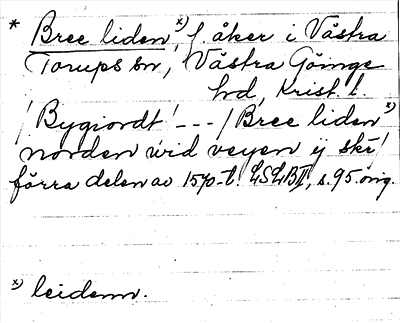 * Bree liden, x) f. åker i Västra
Torups sn, Västra Göinge
hd, Krist. l.
/ Bygiordt / --- / Bree liden x)
norden wid veyen ij skr /
förra delen av 1570-t. LSLBII, s. 95. orig.
x) leidenn.